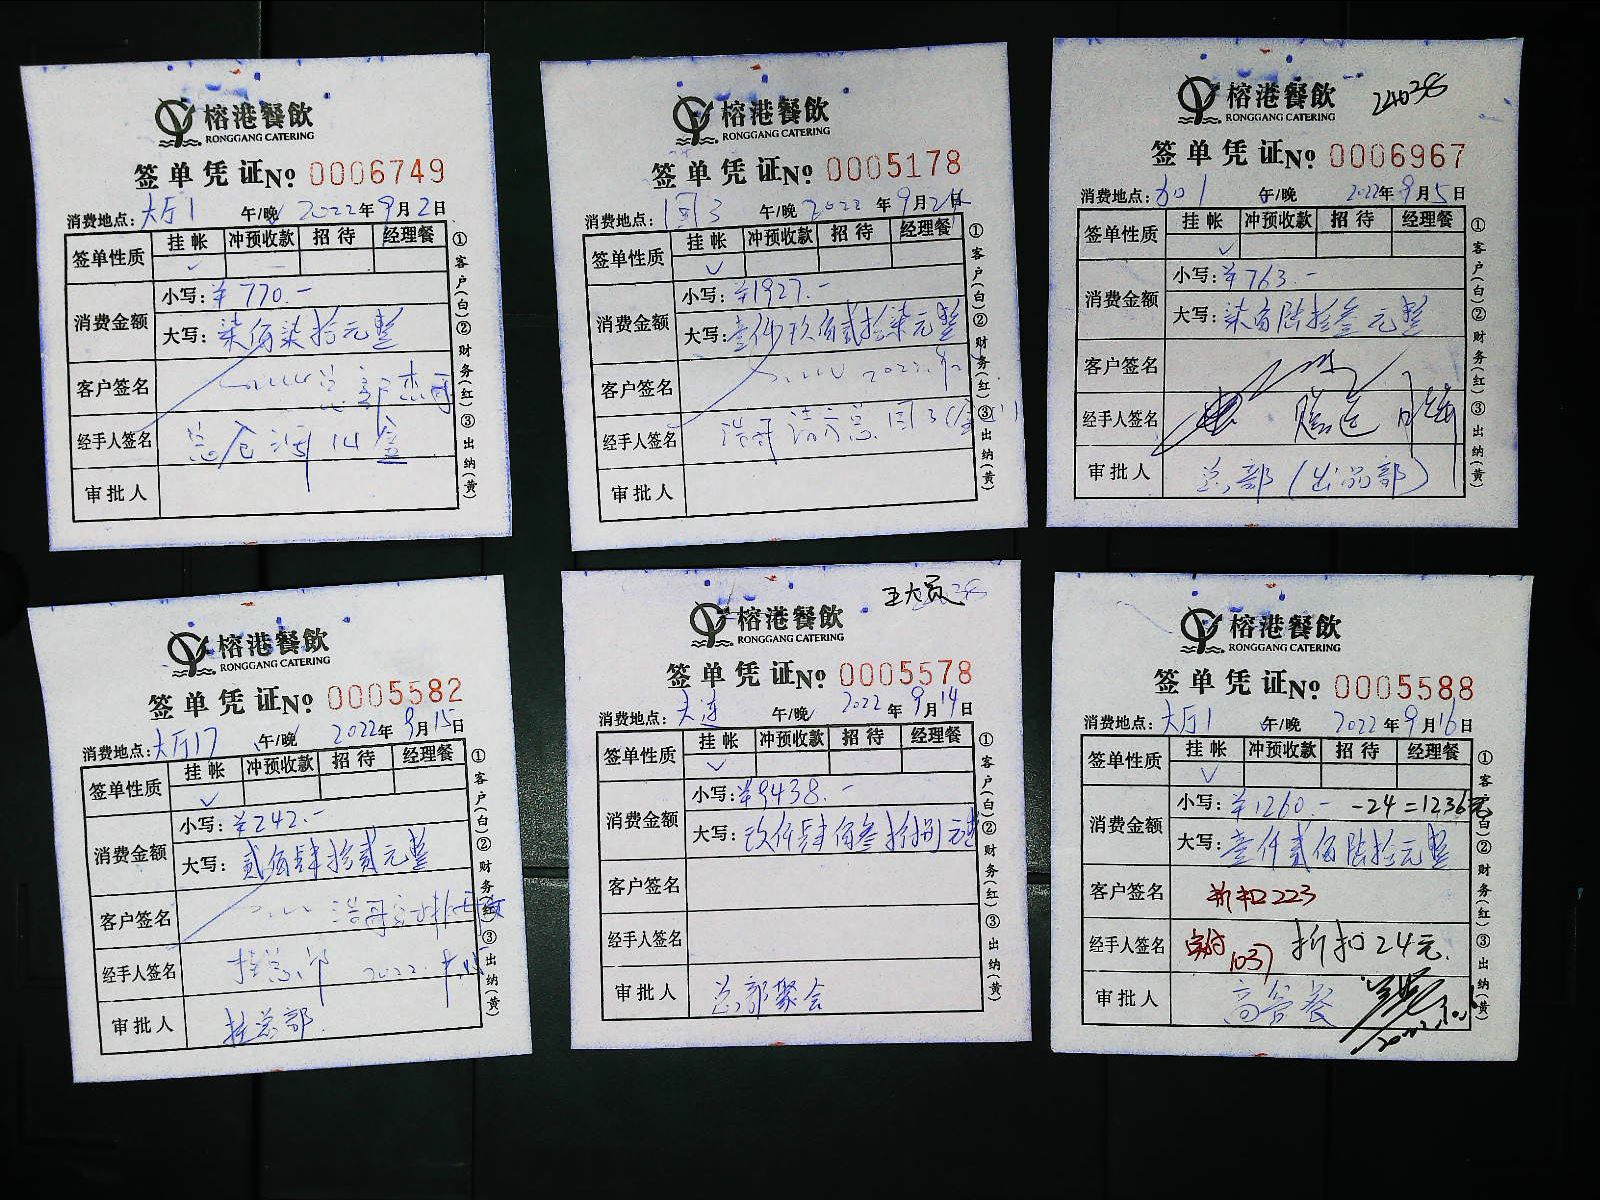 榕港餐飲
RONGGANG CATERING
签单凭证No 0006749
消费地点:大厅1 午/晚 2022年9月2日
签单性质 挂帐 冲预收款 招待 经理餐
消费金额 小写:¥770.-
大写:柒佰柒拾元整
客户签名 总部杰哥
经手人签名 总仓酒14盒
审批人
①客户(白)②财务(红)③出纳(黄)
榕港餐飲
RONGGANG CATERING
签单凭证No 0005178
消费地点: 午/晚 2022年9月2日
签单性质 挂帐 冲预收款 招待 经理餐
消费金额 小写:¥1927.-
大写:壹仟玖佰贰拾柒元整
客户签名 2022.9.2
经手人签名 浩哥请
审批人
①客户(白)②财务(红)③出纳(黄)
榕港餐飲
RONGGANG CATERING
签单凭证No 0006967
消费地点:601 午/晚 2022年9月5日
签单性质 挂帐 冲预收款 招待 经理餐
消费金额 小写:¥763.-
大写:柒佰陆拾叁元整
客户签名
经手人签名
审批人 总部(出品部)
①客户(白)②财务(红)③出纳(黄)
榕港餐飲
RONGGANG CATERING
签单凭证No 0005582
消费地点:大厅17 午/晚 2022年9月15日
签单性质 挂帐 冲预收款 招待 经理餐
消费金额 小写:¥242.-
大写:贰佰肆拾贰元整
客户签名 浩哥
经手人签名 挂总部 2022.9.15
审批人 挂总部.
①客户(白)②财务(红)③出纳(黄)
王大员
榕港餐飲
RONGGANG CATERING
签单凭证No 0005578
消费地点:大连 午/晚 2022年9月14日
签单性质 挂帐 冲预收款 招待 经理餐
消费金额 小写:¥9438.-
大写:玖仟肆佰叁拾捌元整
客户签名
经手人签名
审批人 总部聚会
①客户(白)②财务(红)③出纳(黄)
榕港餐飲
RONGGANG CATERING
签单凭证No 0005588
消费地点:大厅1 午/晚 2022年9月16日
签单性质 挂帐 冲预收款 招待 经理餐
消费金额 小写:¥1260.- -24=1236元
大写:壹仟贰佰陆拾元整
客户签名 折扣223
经手人签名 实付1037 折扣24元.
审批人 高管餐
①客户(白)②财务(红)③出纳(黄)